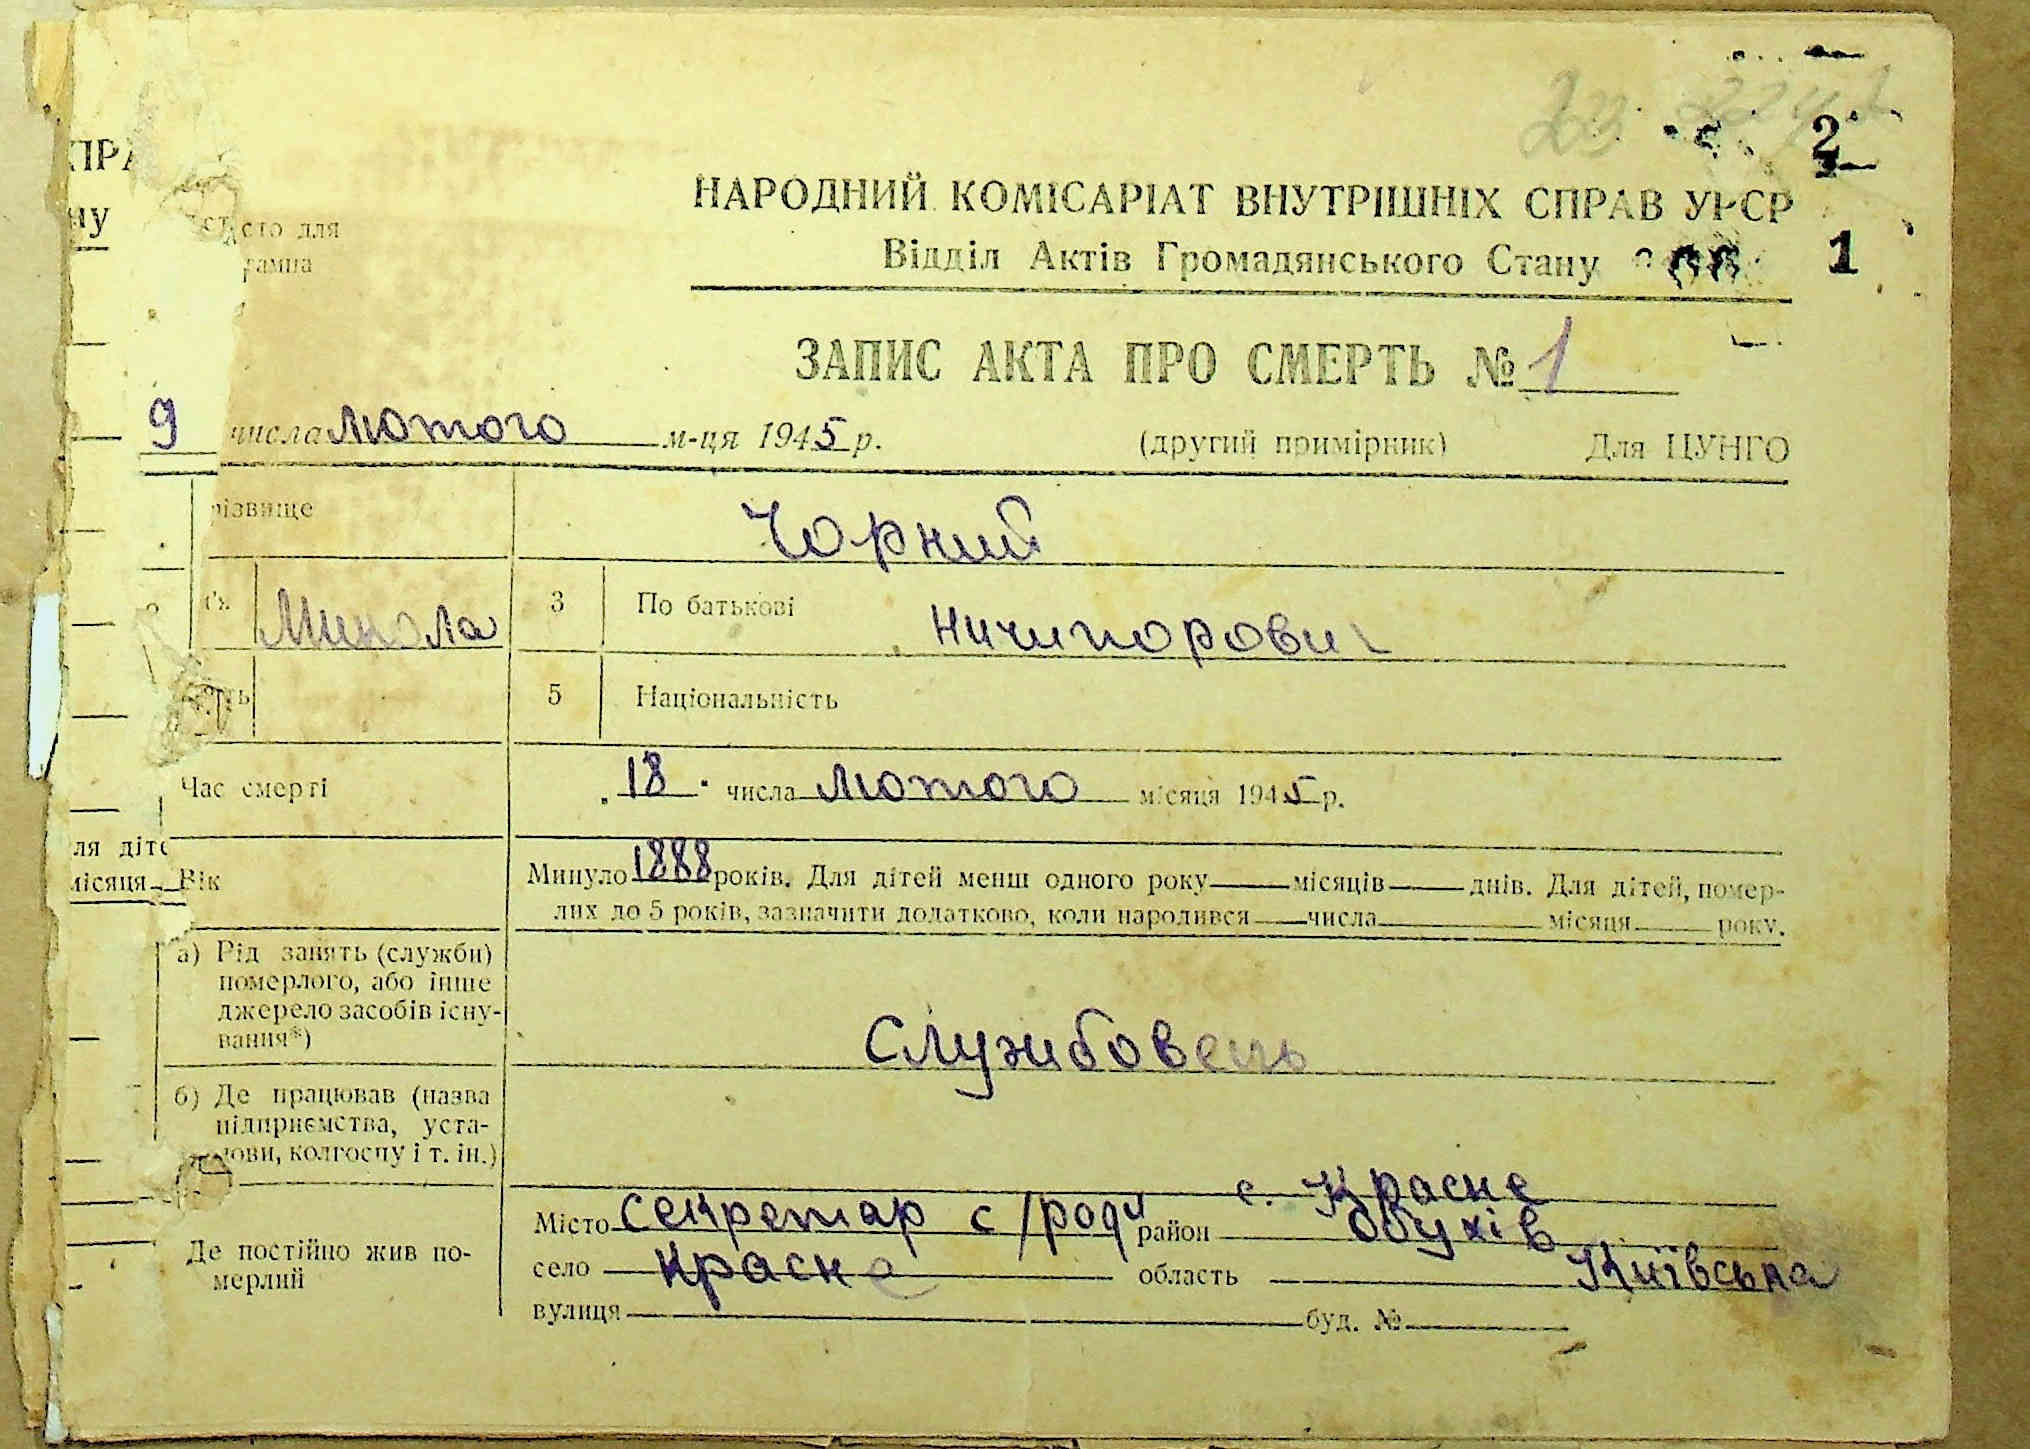 2
НАРОДНИЙ КОМІСАРІАТ ВНУТРІШНІХ СПРАВ УРСР
Відділ Актів Громадянського Стану
1
ЗАПИС АКТА ПРО СМЕРТЬ № 1
9 числа лютого м-ця 1945 р. (другий примірник) Для ЦУНГО
різвище Чорний
Микола 3 По батькові Ничипорович
5 Національність
Час смерті 18 числа лютого місяця 1945 р.
Вік Минуло 1888 років. Для дітей менш одного року місяців днів. Для дітей, помер-
лих до 5 років, зазначити додатково, коли народився числа місяця року.
а) Рід занять (служби)
померлого, або інше
джерело засобів існу-
вання*)
Службовець
б) Де працював (назва
підприємства, уста-
нови, колгоспу і т. ін.)
секретар с/ради с. Красне
Де постійно жив по-
мерлий
Місто район Обухів
село Красне область Київська
вулиця буд. №